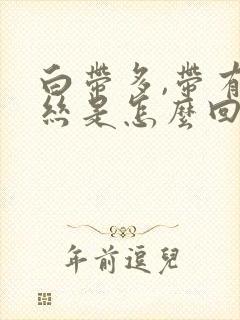 白帶多,帶有
絲是怎麼回
年前逗兒